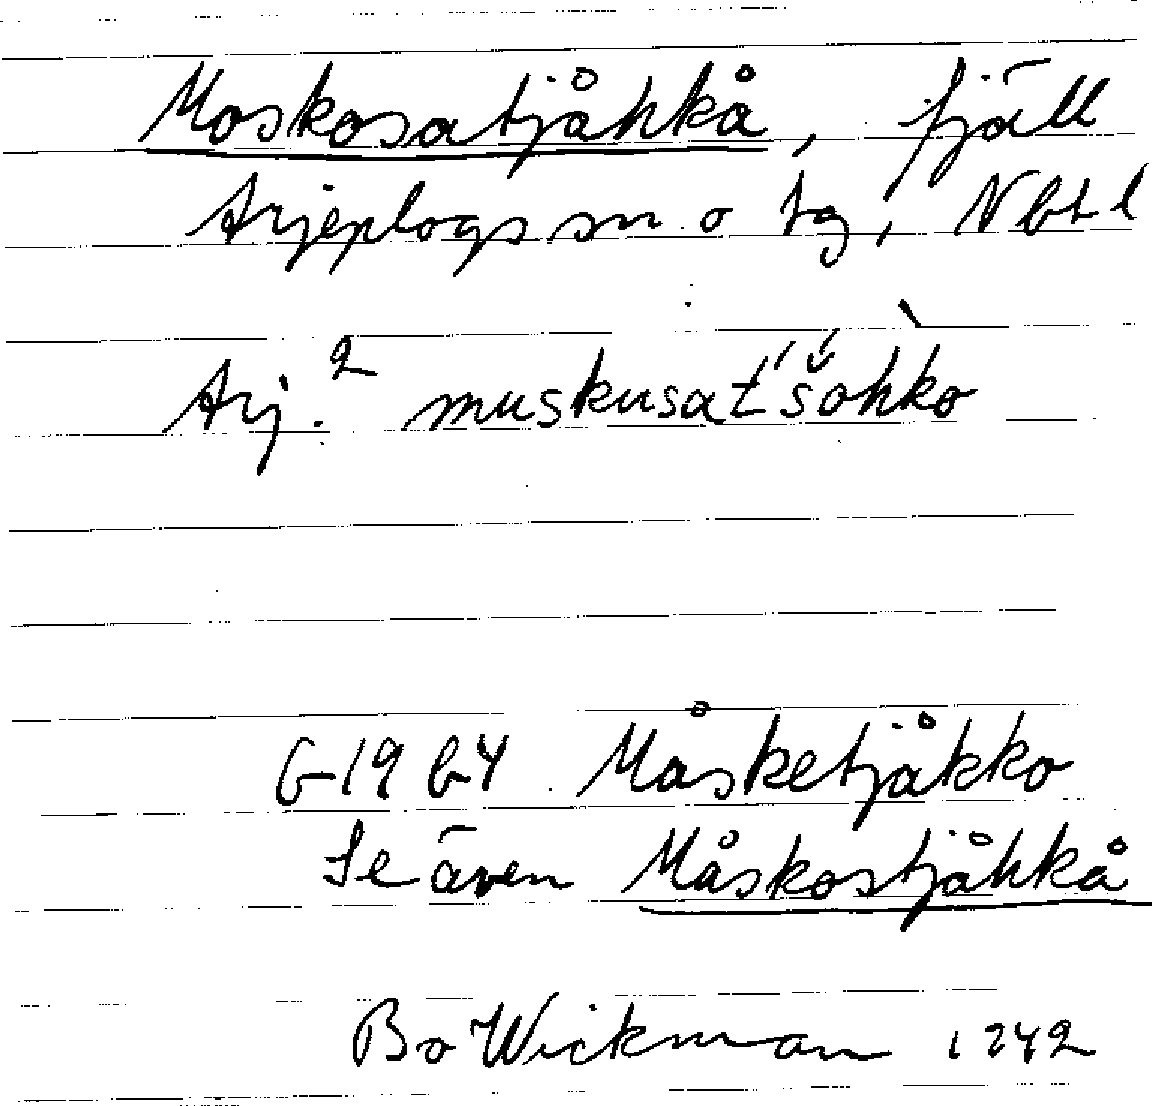 Moskosatjåhkå, fjäll
Arjeplogs sn o tg, Nbt l
Arj.2 muskusat́'š́ohkò
G 1964 Måsketjåkko
Se även Måskostjåhkå
Bo Wickman 1942